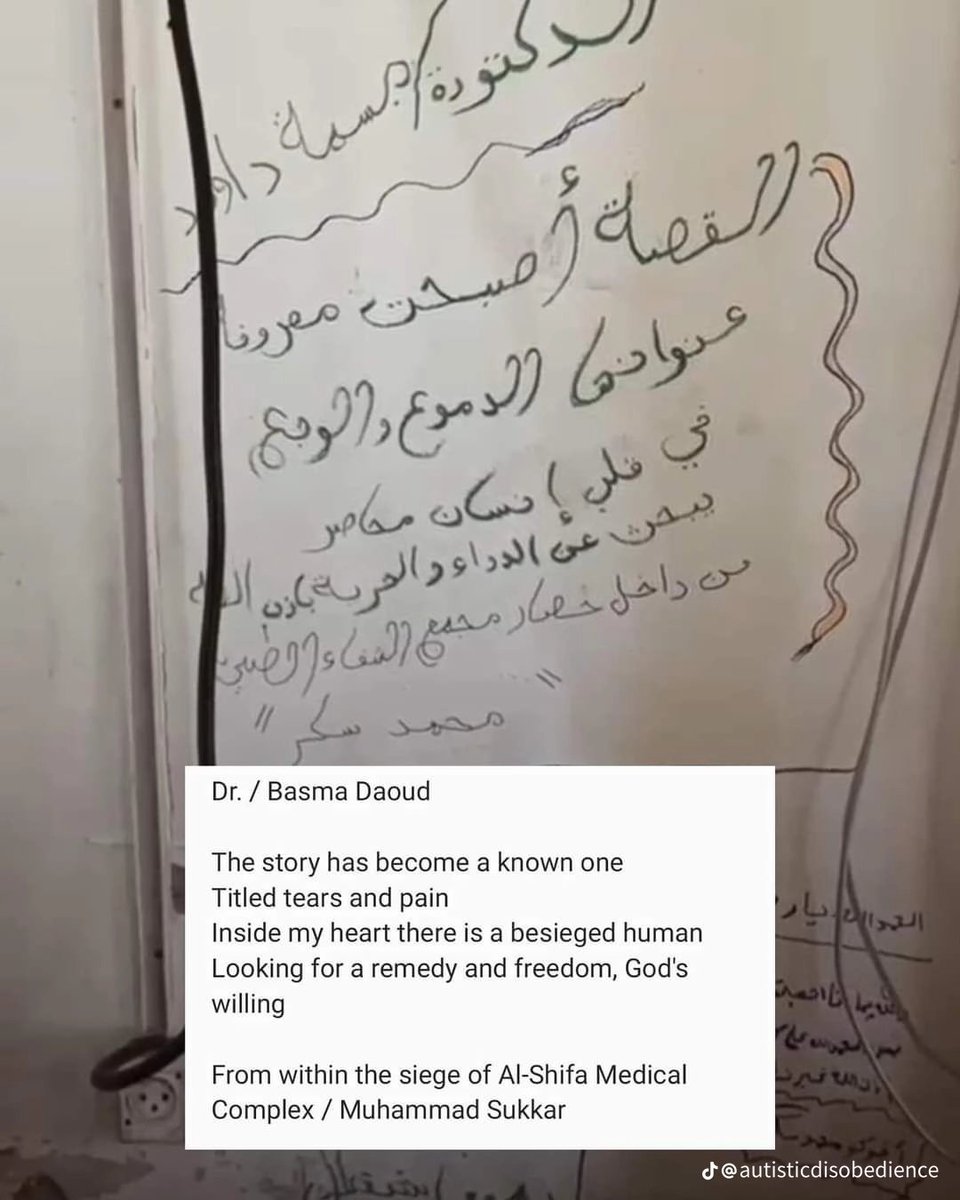 الدكتورة / بسمة داود
القصة أصبحت معروفة
عنوانها الدموع والوجع
في قلب إنسان محاصر
يبحث عن الدواء والحرية بإذن الله
من داخل حصار مجمع الشفاء الطبي
" محمد سكر "
Dr. / Basma Daoud
The story has become a known one
Titled tears and pain
Inside my heart there is a besieged human
Looking for a remedy and freedom, God's
willing
From within the siege of Al-Shifa Medical
Complex / Muhammad Sukkar
@autisticdisobedience